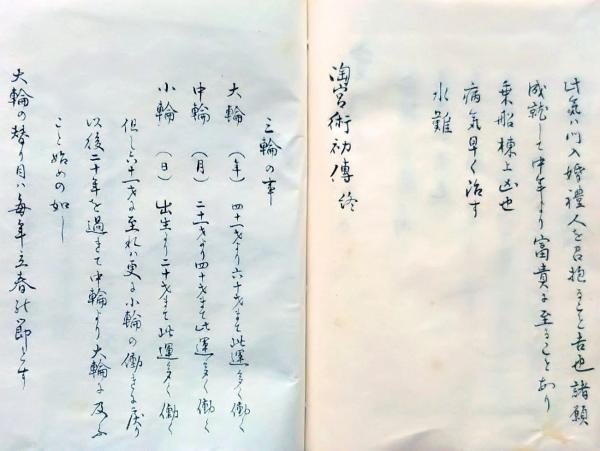 此気ハ門入婚禮人を召抱ること吉也諸願
成就して中年より富貴に至ることあり
乗船棟上凶也
病気早く治す
水難
淘宮術初傳 終
三輪の事
大輪 (年) 四十一才より六十才まて此運多く働く
中輪 (月) 二十一才より四十才まて此運多く働く
小輪 (日) 出生より二十才まて此運多く働く
但し六十一才に至れハ更に小輪の働きに戻り
以後二十年を過きて中輪より大輪に及ふ
こと始めの如し
大輪の替り目ハ毎年立春の節とす